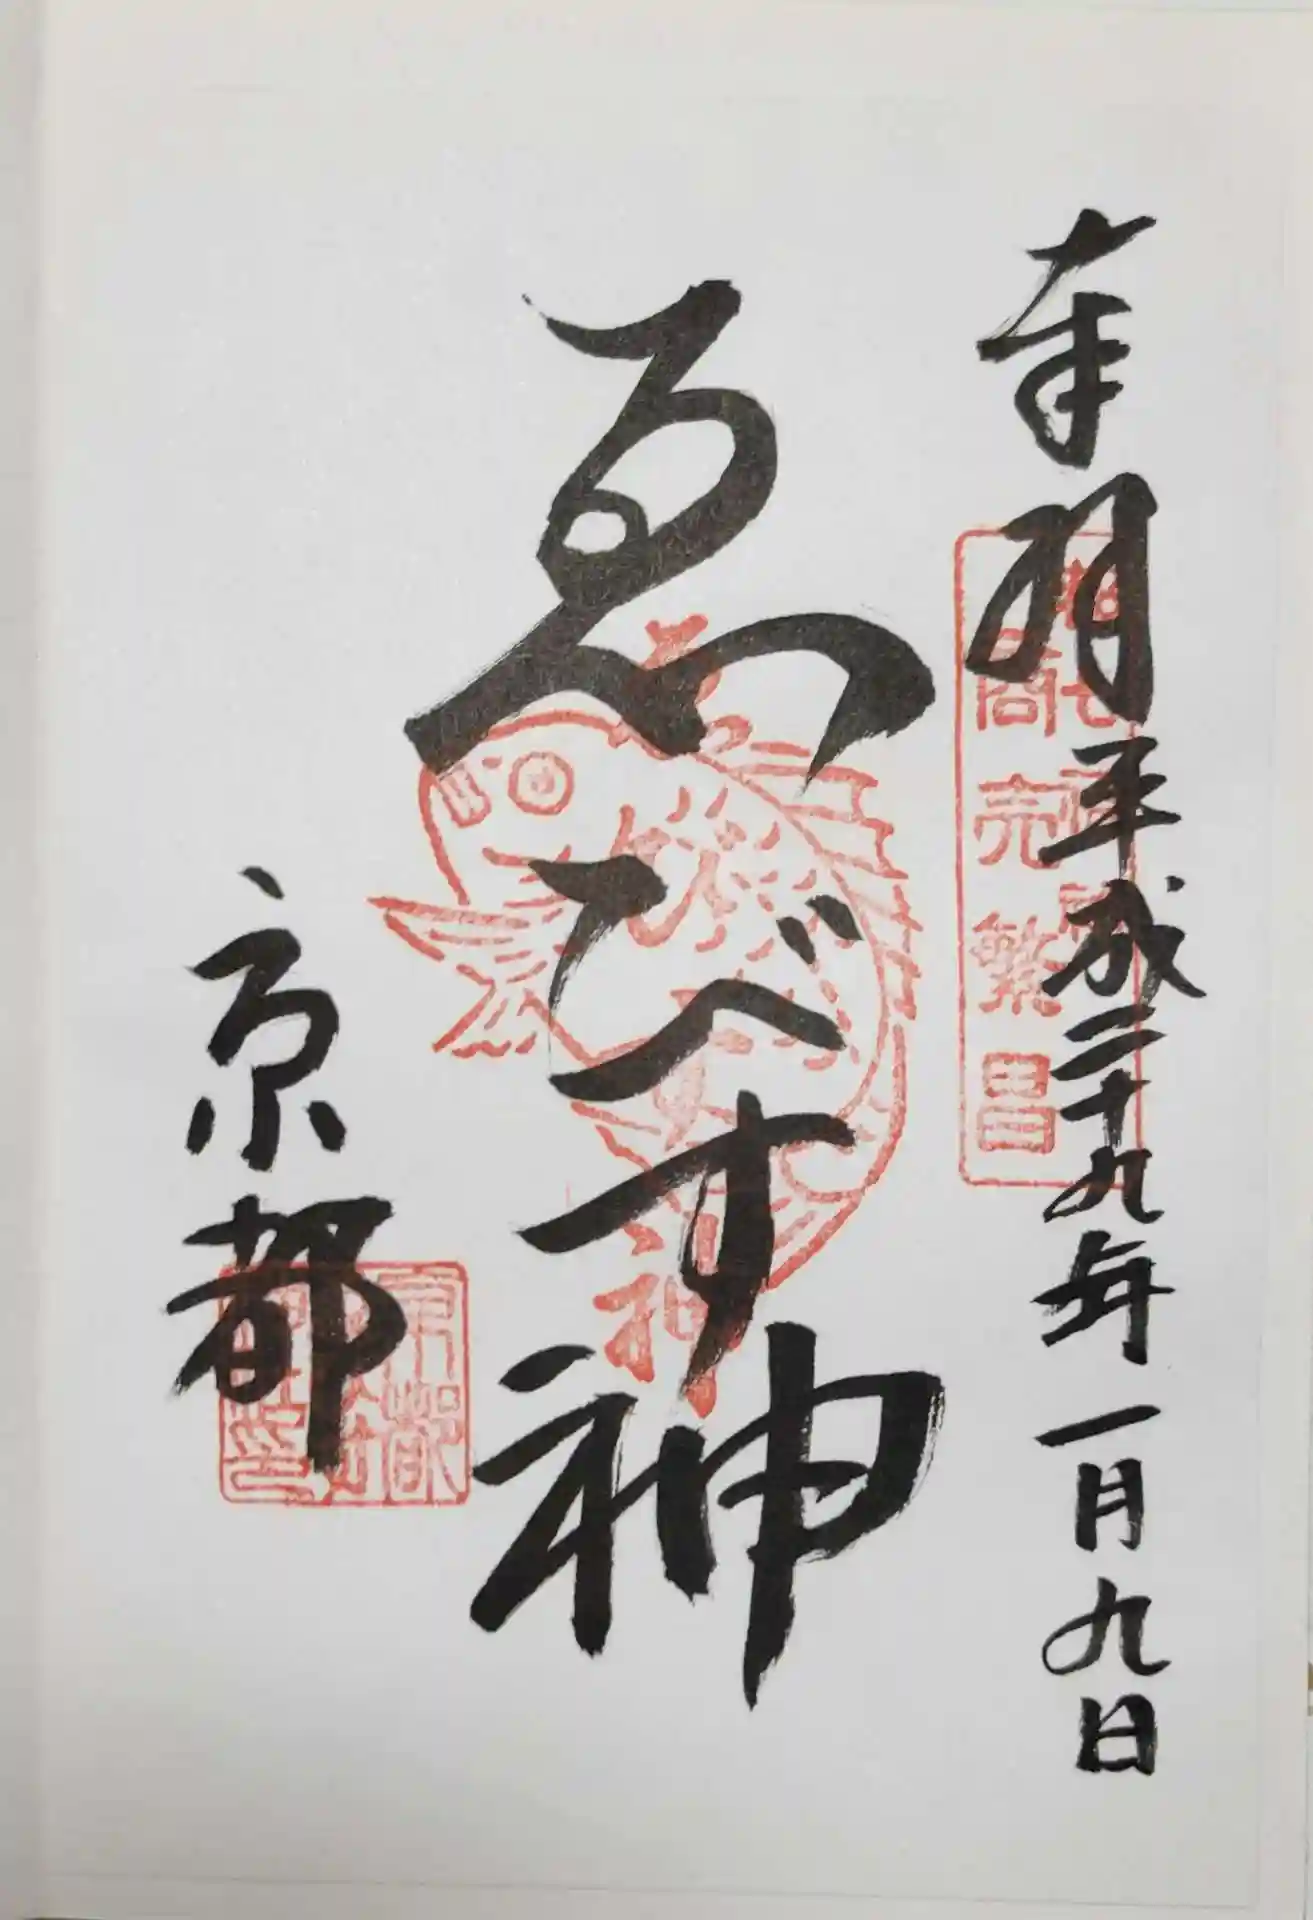 奉拝 平成二十九年一月九日
商売繁昌
ゑびす神
京都